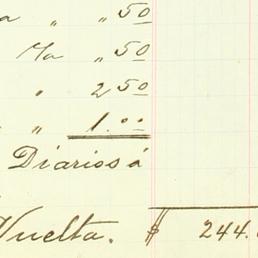 a " " 50
Ma " 50
" 2 50
" 1.00
Diarios á
Vuelta. $ 244.